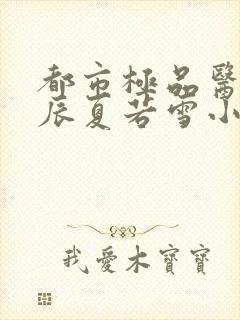 都市極品醫
辰夏若雪小
我愛木寶寶